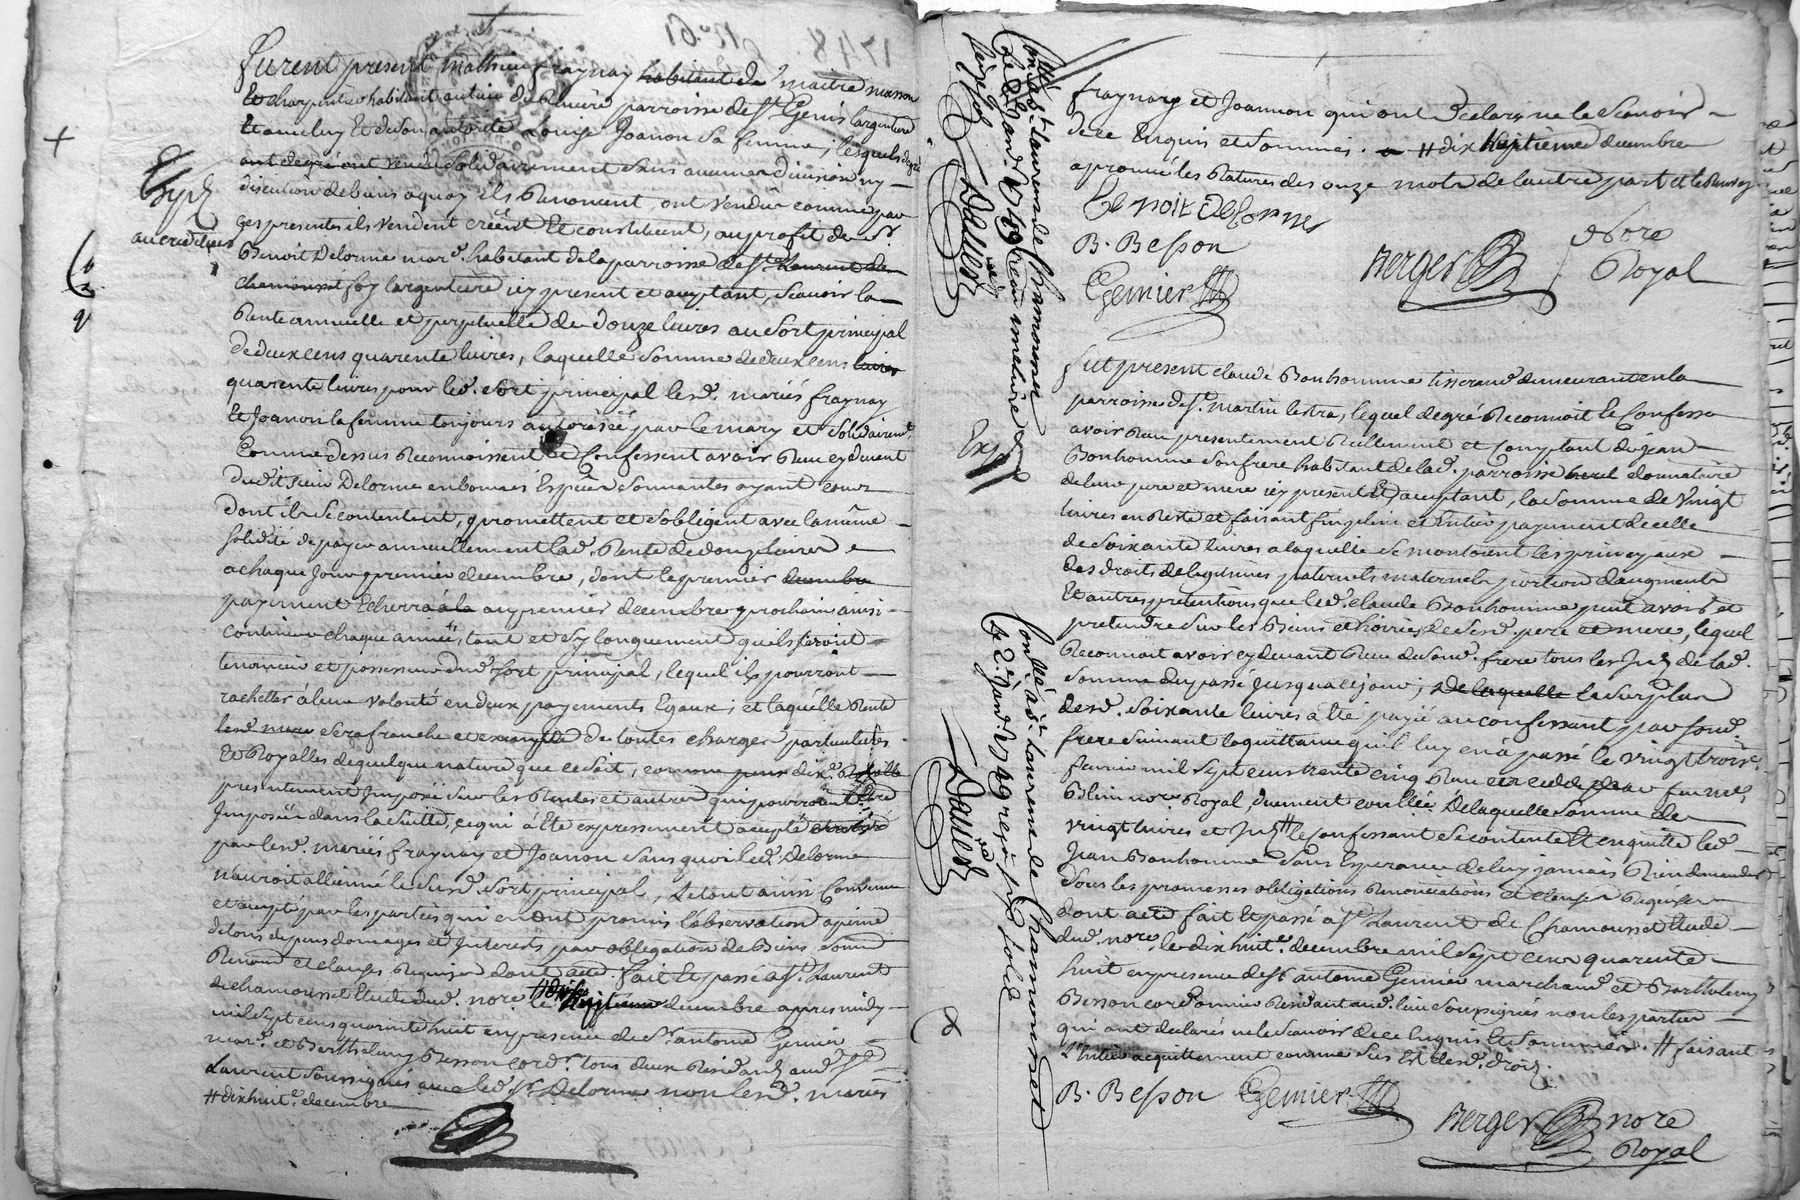 1748. N.º 61
furent present mathieu fraynay habitant de maitre masson
Et charpentier habitant au lieu de parroisse de St Genis largentiere
Et avec luy Et de Son autorité Louise Joanon Sa femme, lesquels de gré
ont de gré ont vendu Solidairement Sans aucune division ny
discution de biens a quoy ils Renoncent, ont vendu comme par
Ces presentes ils vendent créent Et constituent, au profit de Sr
Benoit Delorme mard. habitant de la parroisse de St Laurent de
chamousset foy largentiere icy present et acceptant, Scavoir la
Rente annuelle et perpetuelle de douze livres au Sort principal
de deux cens quarente livres, laquelle Somme de deux cens livres
quarente livres pour led. Sort principal lesd. mariés fraynay
Et Joanon la femme toujours autorisée par le mary et Solidairemt
Comme dessus Reconnoissent Et Confessent avoir Receu cy devant
dudit Sieur Delorme en bonnes Espèces Sonnantes ayant cour
dont ils Se contentent, promettent et Sobligent avec la même
Solidité de payer annuellement lad. Rente de douze livres
a chaque Jour premier decembre, dont le premier decembre
payement Echerra a la au premier decembre prochain ainsi
Continuer chaque année, tant et Sy longuement quils Seront
tenancier et possesseur dud. Sort principal, lequel ils pourront
rachetter à leur volonté en deux payements Egaux; et laquelle Rente
Sera franche et exempte de toutes charges particulieres
Et Royalles de quelque nature que ce Soit, comme dixe. Royalle
presentement Imposé Sur les Rentes et autres qui pourroient Etre
Imposées dans la Suitte, ce qui à Eté expressement accepté
par lesd. mariés fraynay et Joanon Sans quoi led. Delorme
nauroit allienné le Susd. Sort principal, Le tout ainsi Convenu
et accepté par les parties qui en ont promis lobservation a peine
de tous depens domages et Interets par obligation de Biens
Renon. et clauses Requises dont acte. fait Et passé a St Laurent
de chamousset Etude dud. nore. le decembre apres midy
mil Sept cens quarente huit en presence de Sr. antoine Genier
mard. et Berthelemy Besson cordr. tous deux Residants aud. St
Laurent Soussignés avec led. Sr Delorme non lesd. mariés
# dix huite. decembre
Expd
fraynay et Joannon qui ont declaré ne le Scavoir
de ce Enquis et Sommés. # dix huitieme decembre
aprouvé les Ratures des onze mots de lautre part et
Benoit Delorme
B. Besson
Genier
Berger nore Royal
Conllé a St Laurent de Chamousset
Davier
fut present claude Bonhomme tisserand demeurant en la
parroisse de St. martin lestra, lequel de gré Reconnoit Et Confesse
avoir Receu presentement Reellement et Comptant de jean
Bonhomme Son frere habitant de lad. parroisse donnataire
de leur pere et mere icy present Et acceptant, la Somme de Vingt
livres en Reste et faisant fin, plein et Entier payement de celle
de Soixante livres a laquelle Se montoient les principaux
des droits de legitimes paternels maternels portion daugment
Et autres pretentions que led. claude Bonhomme peut avoir et
pretendre Sur les Biens et hoiries de Sesd. pere et mere, lequel
Reconnoit avoir cy devant Receu de Sond. frere tous les Jnts de lad.
Somme du passé Jusqua ce jour; De laquelle le Surplus
desd. Soixante livres à Eté payé au confessant par Sond.
frere Suivant la quittance quil luy en à passé le vingt trois
fevrier mil Sept cens trente cinq Receu par feu me.
Blein nore Royal, duement conllée. De laquelle Somme de
vingt livres et Jnts # le confessant Se contente Et en quitte led.
Jean Bonhomme Sans Esperance de luy jamais Rien demander
Sous les promesses obligations Renonciations et clauses Requises
dont acte fait Et passé a St Laurent de Chamousset Etude
dud. nore. le dix huite. decembre mil Sept cens quarente
huit en presence de Sr antoine Genier marchand et Barthelemy
Besson cordonnier Residant aud. lieu Soussignés non les parties
qui ont declarés ne le Scavoir de ce Enquis Et Sommés. # faisant
Lentier acquittement comme Sus Est desd. droits.
B. Besson
Genier
Berger nore
Royal
Exp
Conllé a St Laurent de Chamousset
Le 2e. janv. 1749
Davier